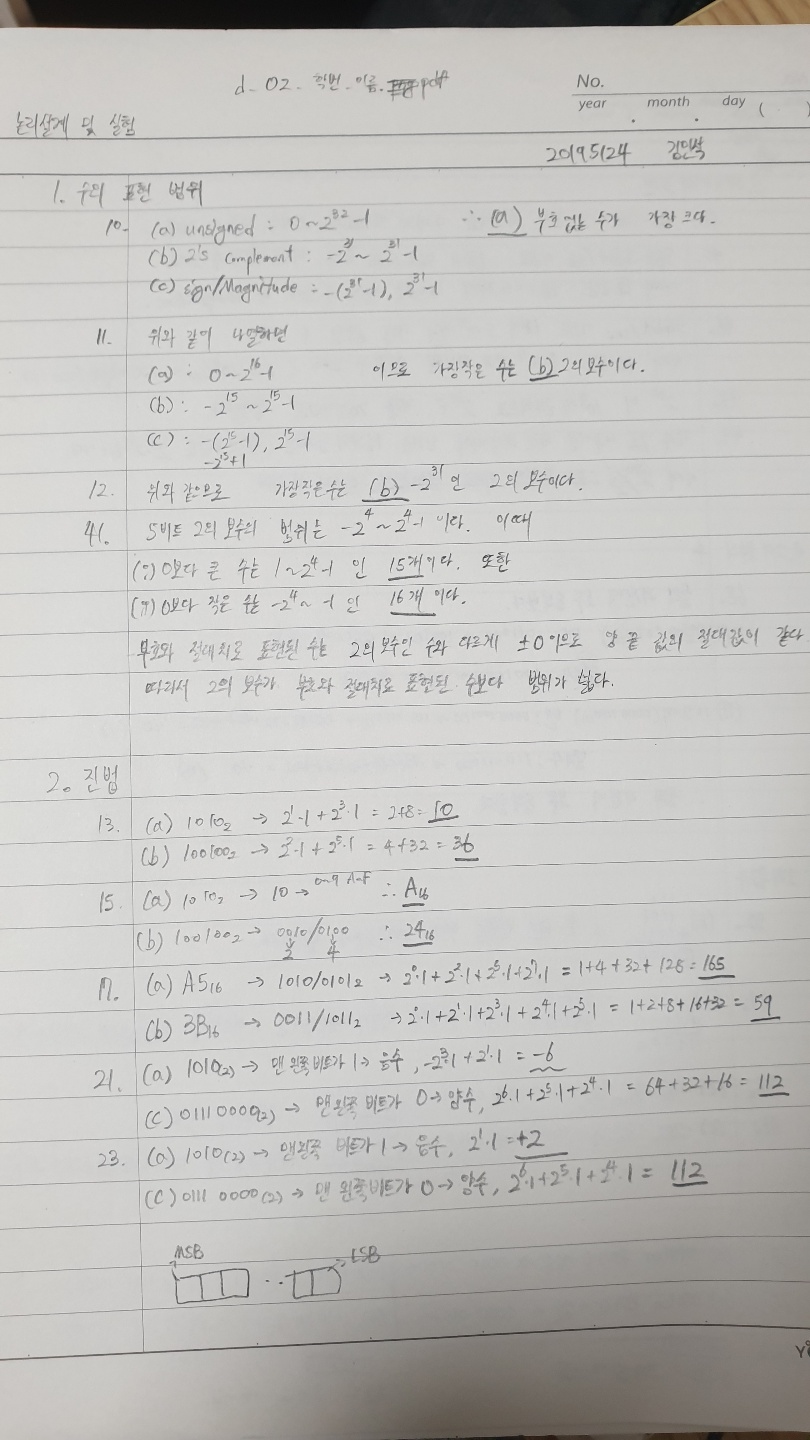 d-02-학번-이름.pdf
No.
year . month . day ( )
논리설계 및 실험
20195124 김민석
1. 수의 표현 범위
10. (a) unsigned : 0 ~ 2³²-1 ∴ (a) 부호없는 수가 가장 크다.
(b) 2's complement : -2³¹ ~ 2³¹-1
(c) sign/Magnitude : -(2³¹-1), 2³¹-1
11. 위와 같이 나열하면
(a) : 0 ~ 2¹⁶-1 이므로 가장작은 수는 (b) 2의 보수이다.
(b) : -2¹⁵ ~ 2¹⁵-1
(c) : -(2¹⁵-1), 2¹⁵-1
-2¹⁵+1
12. 위와 같으므로 가장작은수는 (b) -2³¹ 인 2의 보수이다.
41. 5비트 2의 보수의 범위는 -2⁴ ~ 2⁴-1 이다. 이때
(ㄱ) 0보다 큰 수는 1 ~ 2⁴-1 인 15개이다. 또한
(ㄲ) 0보다 작은 수는 -2⁴ ~ -1 인 16개 이다.
부호와 절대치로 표현된 수는 2의 보수인 수와 다르게 ±0 이므로 양 끝 값의 절대값이 같다
따라서 2의 보수가 부호와 절대치로 표현된 수보다 범위가 넓다.
2. 진법
13. (a) 1010₂ → 2¹·1 + 2³·1 = 2+8 = 10
(b) 100100₂ → 2²·1 + 2⁵·1 = 4+32 = 36
15. (a) 1010₂ → 10 → 0~9 A~F ∴ A₁₆
(b) 100100₂ → 0010/0100 ∴ 24₁₆
2 4
17. (a) A5₁₆ → 1010/0101₂ → 2⁰·1 + 2²·1 + 2⁵·1 + 2⁷·1 = 1+4+32+128 = 165
(b) 3B₁₆ → 0011/1011₂ → 2⁰·1 + 2¹·1 + 2³·1 + 2⁴·1 + 2⁵·1 = 1+2+8+16+32 = 59
21. (a) 1010₍₂₎ → 맨 왼쪽비트가 1 → 음수, -2³·1 + 2¹·1 = -6
(c) 01110000₍₂₎ → 맨왼쪽 비트가 0 → 양수, 2⁶·1 + 2⁵·1 + 2⁴·1 = 64+32+16 = 112
23. (a) 1010(2) → 맨왼쪽 비트가 1 → 음수, 2¹·1 = +2
(c) 0111 0000(2) → 맨 왼쪽비트가 0 → 양수, 2⁶·1 + 2⁵·1 + 2⁴·1 = 112
MSB LSB